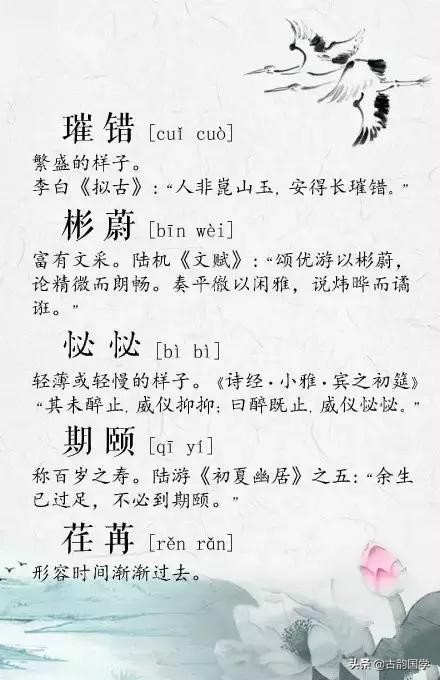 璀错 [cuǐ cuò]
繁盛的样子。
李白《拟古》:“人非崑山玉,安得长璀错。”
彬蔚 [bīn wèi]
富有文采。陆机《文赋》:“颂优游以彬蔚,
论精微而朗畅。奏平徹以闲雅,说炜晔而谲
诳。”
怭怭 [bì bì]
轻薄或轻慢的样子。《诗经·小雅·宾之初筵》
“其未醉止,威仪抑抑;曰醉既止,威仪怭怭。”
期颐 [qī yí]
称百岁之寿。陆游《初夏幽居》之五:“余生
已过足,不必到期颐。”
荏苒 [rěn rǎn]
形容时间渐渐过去。
头条@古韵国学